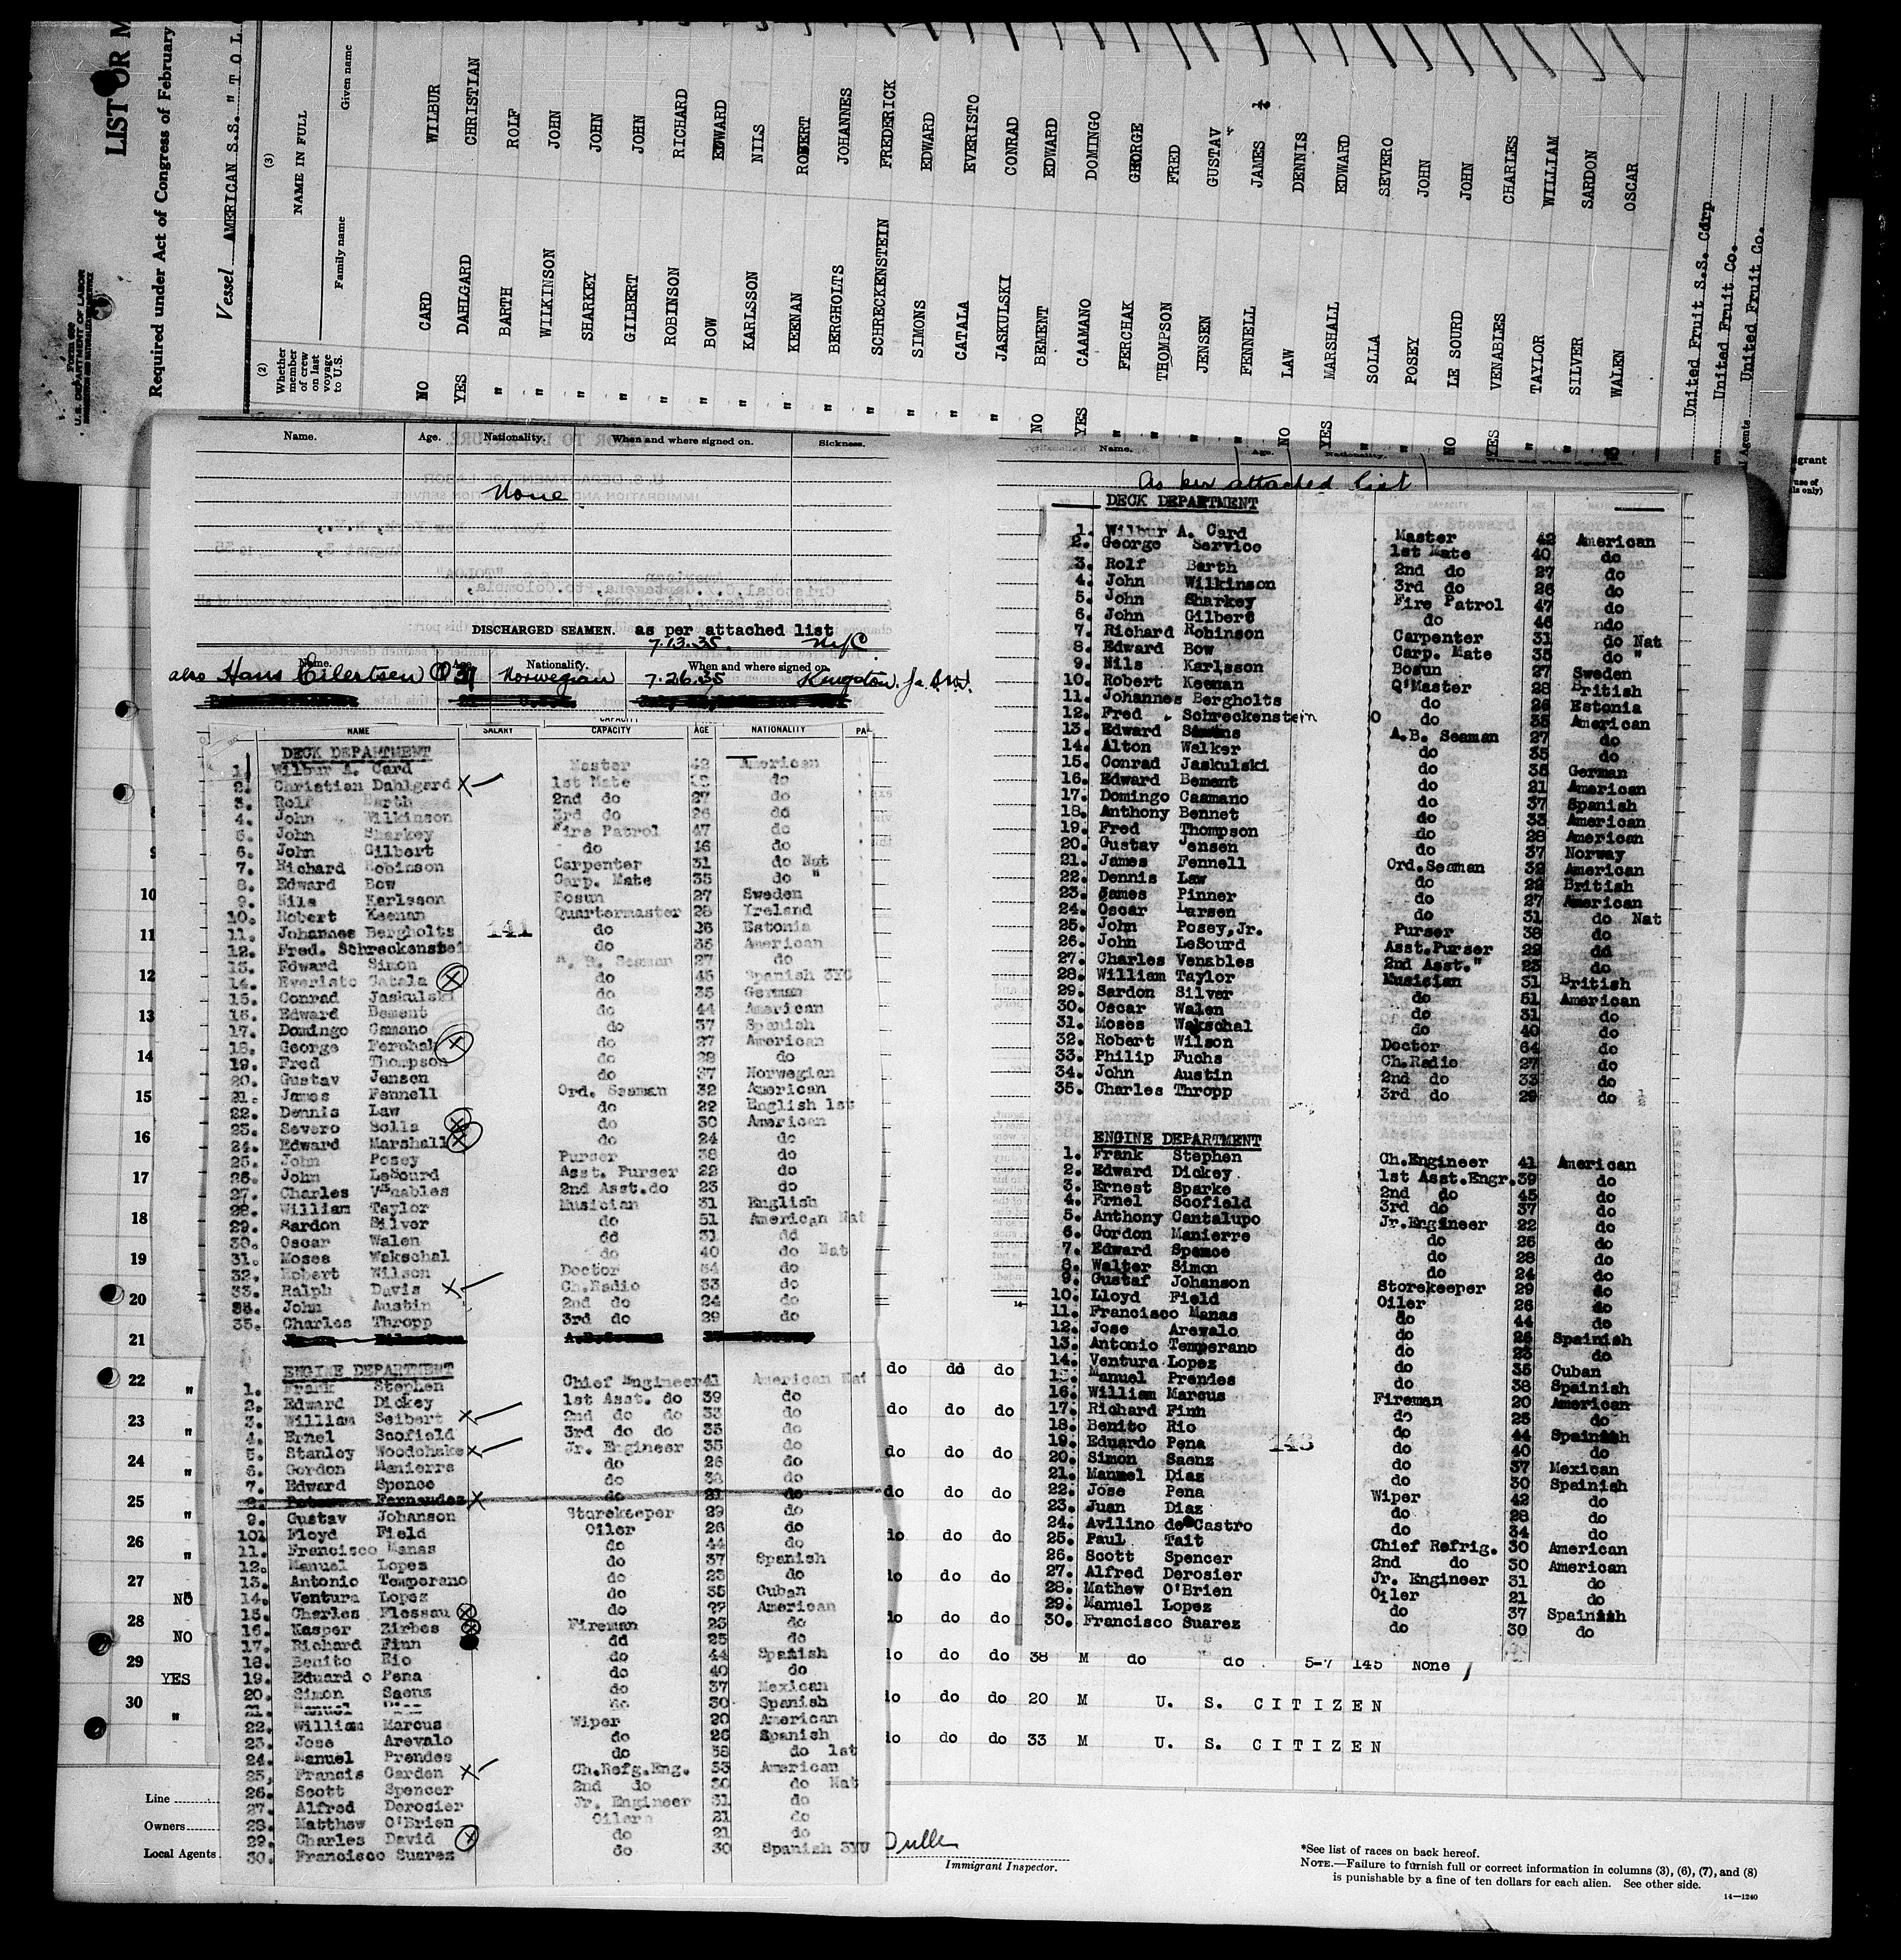 LIST OR M
Required under Act of Congress of February
Vessel AMERICAN S.S. "TOL
Form 680
U.S. DEPARTMENT OF LABOR
IMMIGRATION AND NATURALIZATION SERVICE
(3)
NAME IN FULL
Given name
Family name
(2)
Whether member of crew on last voyage to U.S.
NO CARD WILBUR
YES DAHLGARD CHRISTIAN
" BARTH ROLF
" WILKINSON JOHN
" SHARKEY JOHN
" GILBERT JOHN
" ROBINSON RICHARD
" BOW EDWARD
" KARLSSON NILS
" KEENAN ROBERT
" BERGHOLTS JOHANNES
" SCHRECKENSTEIN FREDERICK
" SIMONS EDWARD
" CATALA EVERISTO
" JASKULSKI CONRAD
NO BEMENT EDWARD
YES CAAMANO DOMINGO
" FERCHAK GEORGE
" THOMPSON FRED
" JENSEN GUSTAV
" FENNELL JAMES
NO LAW DENNIS
YES MARSHALL EDWARD
" SOLLA SEVERO
" POSEY JOHN
NO LE SOURD JOHN
YES VENABLES CHARLES
" TAYLOR WILLIAM
" SILVER SARDON
WALEN OSCAR
United Fruit S.S. Corp
United Fruit Co.
Agents United Fruit Co.
Name. Age. Nationality. When and where signed on. Sickness.
None
DISCHARGED SEAMEN. as per attached list
7.13.35. NYC
Name. Age. Nationality. When and where signed on.
also Hans Eilertsen 37 Norwegian 7.26.35 Kingston. Ja. B.W.I.
NAME SALARY CAPACITY AGE NATIONALITY PA
DECK DEPARTMENT
1. Wilbur A. Card Master 42 American
2. Christian Dahlgard X 1st Mate 38 do
3. Rolf Barth 2nd do 27 do
4. John Wilkinson 3rd do 26 dd
5. John Sharkey Fire Patrol 47 do
6. John Gilbert do 46 do
7. Richard Robinson Carpenter 31 do Nat
8. Edward Bow Carp. Mate 35 do "
9. Nils Karlsson Bosun 27 Sweden
10. Robert Keenan Quartermaster 28 Ireland
11. Johannes Bergholts 141 do 26 Estonia
12. Fred. Schreckenstei do 35 American
13. Edward Simon A. B. Seaman 27 do
14. Everisto Catala X do 45 Spanish 3YC
15. Conrad Jaskulski do 35 German
16. Edward Bement do 44 American
17. Domingo Camano do 37 Spanish
18. George Ferchak X do 27 American
19. Fred Thompson do 28 do
20. Gustav Jensen do 37 Norwegian
21. James Fennell Ord. Seaman 32 American
22. Dennis Law do 22 English 1st
23. Severo Solla X do 30 American
24. Edward Marshall X do 24 do
25. John Posey Purser 38 do
26. John LeSourd Asst. Purser 22 do
27. Charles Venables 2nd Asst.do 23 do
28. William Taylor Musician 31 English
29. Sardon Silver do 51 American Nat
30. Oscar Walen dd 31 dd
31. Moses Wakschal do 40 do Nat
32. Robert Wilson Doctor 64 do
33. Ralph Davis X Ch.Radio 33 do
34. John Austin 2nd do 24 do
35. Charles Thropp 3rd do 29 do
ENGINE DEPARTMENT
1. Frank Stephen Chief Engineer 41 American Nat
2. Edward Dickey 1st Asst. do 39 do
3. William Seibert X 2nd do do 33 do
4. Ernel Scofield 3rd do do 35 do
5. Stanley Woodcheke X Jr. Engineer 35 do
6. Gordon Manierre do 26 do
7. Edward Spence do 38 do
8. Fernandez X do 21 do
9. Gustav Johanson Storekeeper 29 do
10. Floyd Field Oiler 26 do
11. Francisco Manas do 44 do
12. Manuel Lopez do 37 Spanish
13. Antonio Temperano do 23 do
14. Ventura Lopez do 35 Cuban
15. Charles Flessau X do 22 American
16. Kasper Zirbes X Fireman 23 do
17. Richard Finn dd 25 do
18. Benito Rio do 44 Spanish
19. Eduardo Pena do 40 do
20. Simon Saenz do 37 Mexican
21. 30 Spanish
22. William Marcus Wiper 20 American
23. Jose Arevalo do 26 Spanish
24. Manuel Prendes do 38 do 1st
25. Francis Carden X Ch.Refg.Eng. 33 American
26. Scott Spencer 2nd do 30 do Nat
27. Alfred Derosier Jr. Engineer 31 do
28. Matthew O'Brien Oiler 21 do
29. Charles David X do 21 do
30. Francisco Suarez do 30 Spanish 3YU
As per attached list
DECK DEPARTMENT
1. Wilbur A. Card Master 42 American
2. George Service 1st Mate 40 do
3. Rolf Barth 2nd do 27 do
4. John Wilkinson 3rd do 26 do
5. John Sharkey Fire Patrol 47 do
6. John Gilbert do 46 ndo
7. Richard Robinson Carpenter 31 do Nat
8. Edward Bow Carp. Mate 35 do "
9. Nils Karlsson Bosun 27 Sweden
10. Robert Keenan Q'Master 28 British
11. Johannes Bergholts do 26 Estonia
12. Fred. Schreckenstein do 35 American
13. Edward Simons A.B. Seaman 27 do
14. Alton Walker do 35 do
15. Conrad Jaskulski do 35 German
16. Edward Bement do 21 American
17. Domingo Caamano do 37 Spanish
18. Anthony Bennet do 33 American
19. Fred Thompson do 28 American
20. Gustav Jensen do 37 Norway
21. James Fennell Ord.Seaman 32 American
22. Dennis Law do 22 British
23. James Pinner do 27 American
24. Oscar Larsen do 31 do Nat
25. John Posey,Jr. Purser 38 do
26. John LeSourd Asst.Purser 22 dd
27. Charles Venables 2nd Asst." 23 do
28. William Taylor Musician 31 British
29. Sardon Silver do 51 American
30. Oscar Walen do 31 do
31. Moses Wakschal do 40 do
32. Robert Wilson Doctor 64 do
33. Philip Fuchs Ch.Radio 27 do
34. John Austin 2nd do 33 do
35. Charles Thropp 3rd do 29 do
ENGINE DEPARTMENT
1. Frank Stephen Ch.Engineer 41 American
2. Edward Dickey 1st Asst.Engr. 39 do
3. Ernest Sparke 2nd do 45 do
4. Ernel Scofield 3rd do 37 do
5. Anthony Cantalupo Jr.Engineer 22 do
6. Gordon Manierre do 26 do
7. Edward Spence do 28 do
8. Walter Simon do 24 do
9. Gustaf Johanson Storekeeper 29 do
10. Lloyd Field Oiler 26 do
11. Francisco Manas do 44 do
12. Jose Arevalo do 26 Spainish
13. Antonio Temperano do 23 do
14. Ventura Lopez do 35 Cuban
15. Manuel Prendes do 38 Spainish
16. William Marcus Fireman 20 American
17. Richard Finn do 25 do
18. Benito Rio do 44 Spainish
19. Eduardo Pena 143 do 40 do
20. Simon Saenz do 37 Mexican
21. Manuel Diaz do 30 Spainish
22. Jose Pena Wiper 42 do
23. Juan Diaz do 28 do
24. Avilino de Castro do 34 do
25. Paul Tait Chief Refrig. 30 American
26. Scott Spencer 2nd do 30 American
27. Alfred Derosier Jr. Engineer 31 do
28. Mathew O'Brien Oiler 21 do
29. Manuel Lopez do 37 Spainish
30. Francisco Suarez do 30 do
9
10
11
12
13
14
15
16
17
18
19
20
21
22 " do dd do
23 " do do do
24 " do do do
25 " do do do
26 " do do do
27 NO do do do
28 NO do do do
29 YES do do do 38 M do do 5-7 145 None
30 " do do do 20 M U. S. CITIZEN
do do do 33 M U. S. CITIZEN
Line
Owners
Local Agents
Immigrant Inspector.
*See list of races on back hereof.
NOTE.—Failure to furnish full or correct information in columns (3), (6), (7), and (8)
is punishable by a fine of ten dollars for each alien. See other side.
14—1240